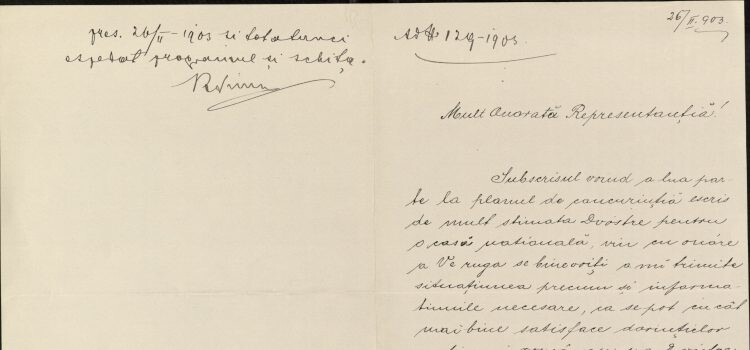 pres. 26/II - 1903 si tot atunci
espedat programul și schița.
26/II. 903
Ad № 129-1903
Mult Onorată Representanția!
Subscrisul voind a lua par-
te la planul de concurința escris
de mult stimata Dvostre pentru
o casă natională, vin cu onóre
a Ve ruga se binevoiți a mi trimite
situațiunea precum și informa-
tiunile necesare, ca se pot cu cât
mai bine satisface dorințielor